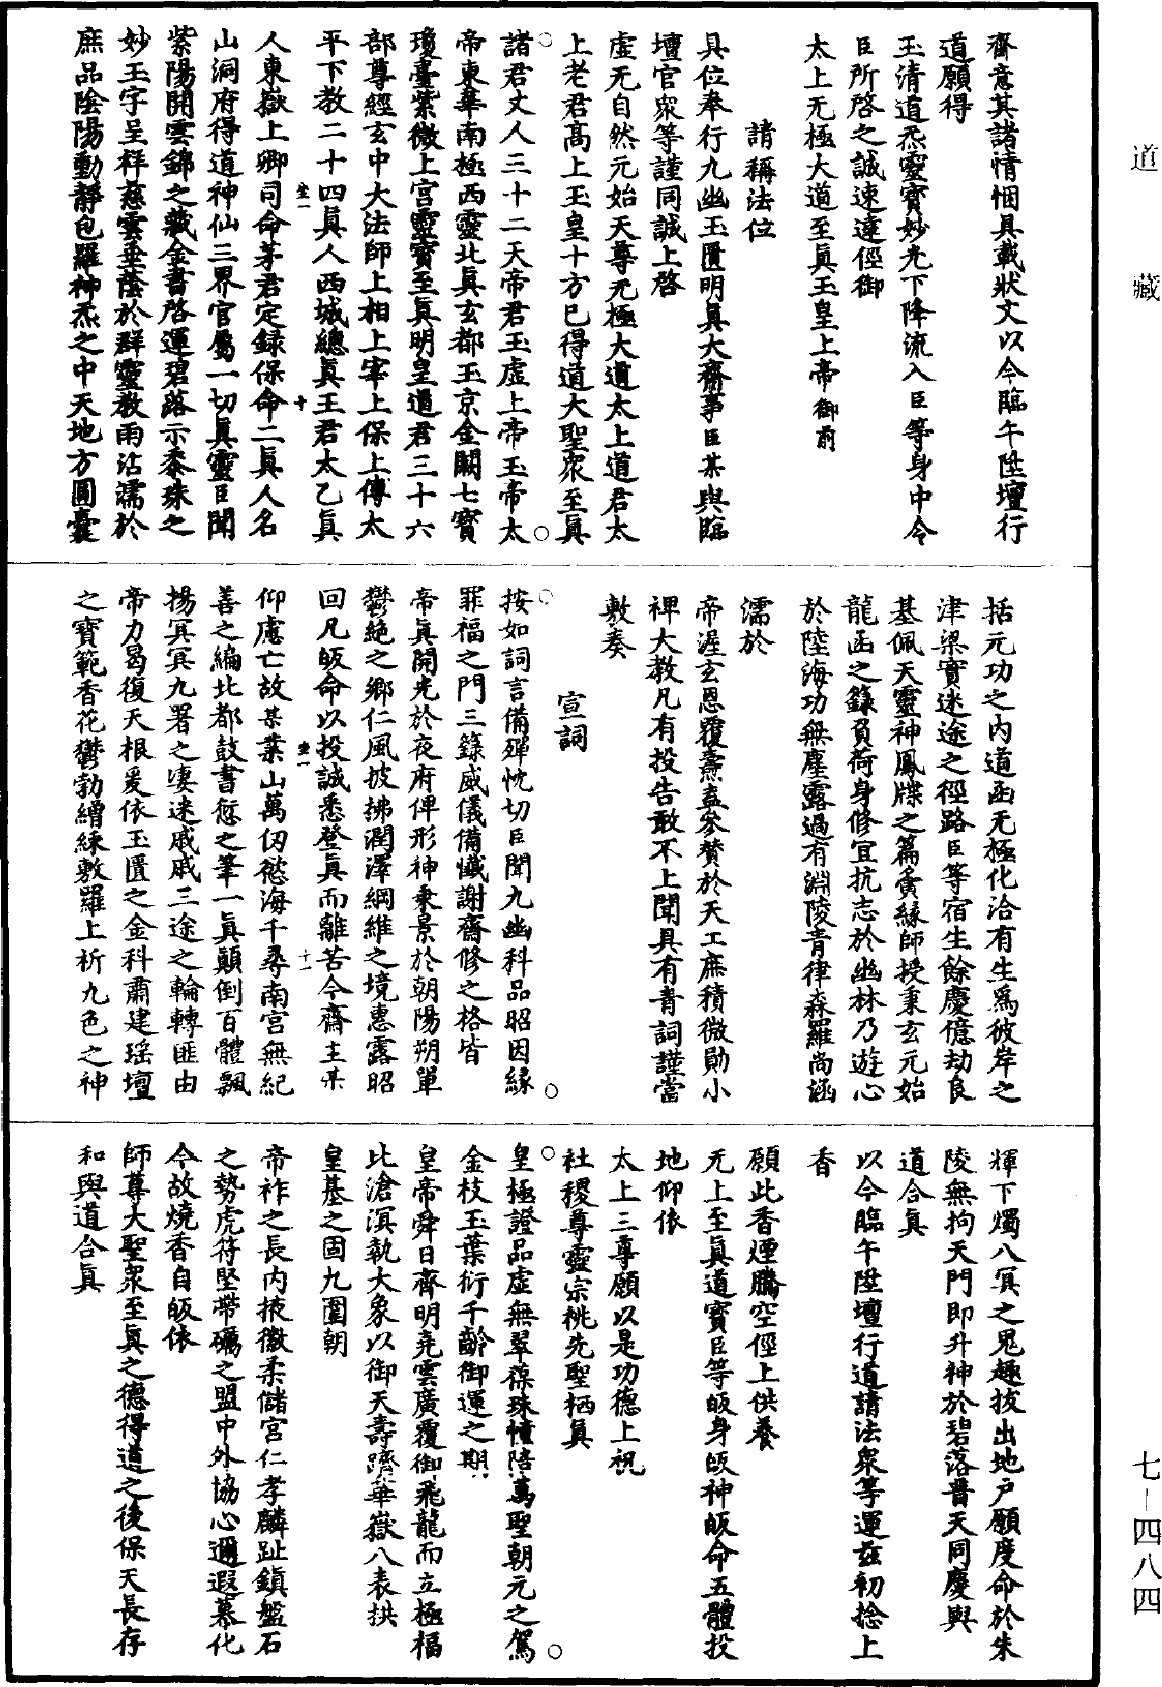 道藏
七—四八四
齋意其諸情悃具載狀文以今臨午陞壇行
道願得
玉清道炁靈寶妙光下降流入臣等身中令
臣所啓之誠速達徑御
太上无極大道至眞玉皇上帝御前
請稱法位
具位奉行九幽玉匱明眞大齋事臣某與臨
壇官衆等謹同誠上啓
虛无自然元始天尊无極大道太上道君太
上老君高上玉皇十方已得道大聖衆至眞
諸君丈人三十二天帝君玉虛上帝玉帝太
帝東華南極西靈北眞玄都玉京金闕七寶
瓊臺紫微上宮靈寶至眞明皇道君三十六
部尊經玄中大法師上相上宰上保上傅太
平下教二十四眞人西城總眞王君太乙眞
人東嶽上卿司命茅君定錄保命二眞人名
山洞府得道神仙三界官屬一切眞靈臣聞
紫陽開雲錦之藏金書啓運碧落示黍珠之
妙玉字呈祥慈雲垂蔭於群靈教雨沾濡於
庶品陰陽動靜包羅神炁之中天地方圓囊
括元功之內道函无極化洽有生爲彼岸之
津梁實迷途之徑路臣等宿生餘慶億劫良
基佩天靈神鳳牒之篇夤緣師授秉玄元始
龍函之籙負荷身修宜抗志於幽林乃遊心
於陸海功無塵露過有淵陵青律森羅尚涵
濡於
帝渥玄恩覆燾盍參贊於天工庶積微勛小
裨大教凡有投告敢不上聞具有青詞謹當
敷奏
宣詞
按如詞言備殫忱切臣聞九幽科品昭因緣
罪福之門三籙威儀備懺謝齋修之格皆
帝眞開光於夜府俾形神秉景於朝陽朔單
鬱絶之鄉仁風披拂潤澤綱維之境惠露昭
回凡皈命以投誠悉登眞而離苦今齋主某
仰慮亡故某業山萬仞慾海千尋南宮無紀
善之編北都鼓書愆之筆一眞顛倒百體飄
揚冥冥九署之凄迷戚戚三途之輪轉匪由
帝力曷復天根爰依玉匱之金科肅建瑤壇
之寶範香花鬱勃繒綵敷羅上祈九色之神
輝下燭八冥之鬼趣拔出地戶願度命於朱
陵無拘天門即升神於碧落普天同慶與
道合眞
以今臨午陞壇行道請法衆等運茲初捻上
香
願此香煙騰空徑上供養
无上至眞道寶臣等皈身皈神皈命五體投
地仰依
太上三尊願以是功德上祝
社稷尊靈宗祧先聖栖眞
皇極證品虛無翠葆珠幢陪萬聖朝元之駕
金枝玉葉衍千齡御運之期
皇帝舜日齊明堯雲廣覆御飛龍而立極福
比滄溟執大象以御天壽躋華嶽八表拱
皇基之固九圍朝
帝祚之長內掖徽柔儲宮仁孝麟趾鎮盤石
之勢虎符堅帶礪之盟中外協心邇遐慕化
今故燒香自皈依
師尊大聖衆至眞之德得道之後保天長存
和與道合眞